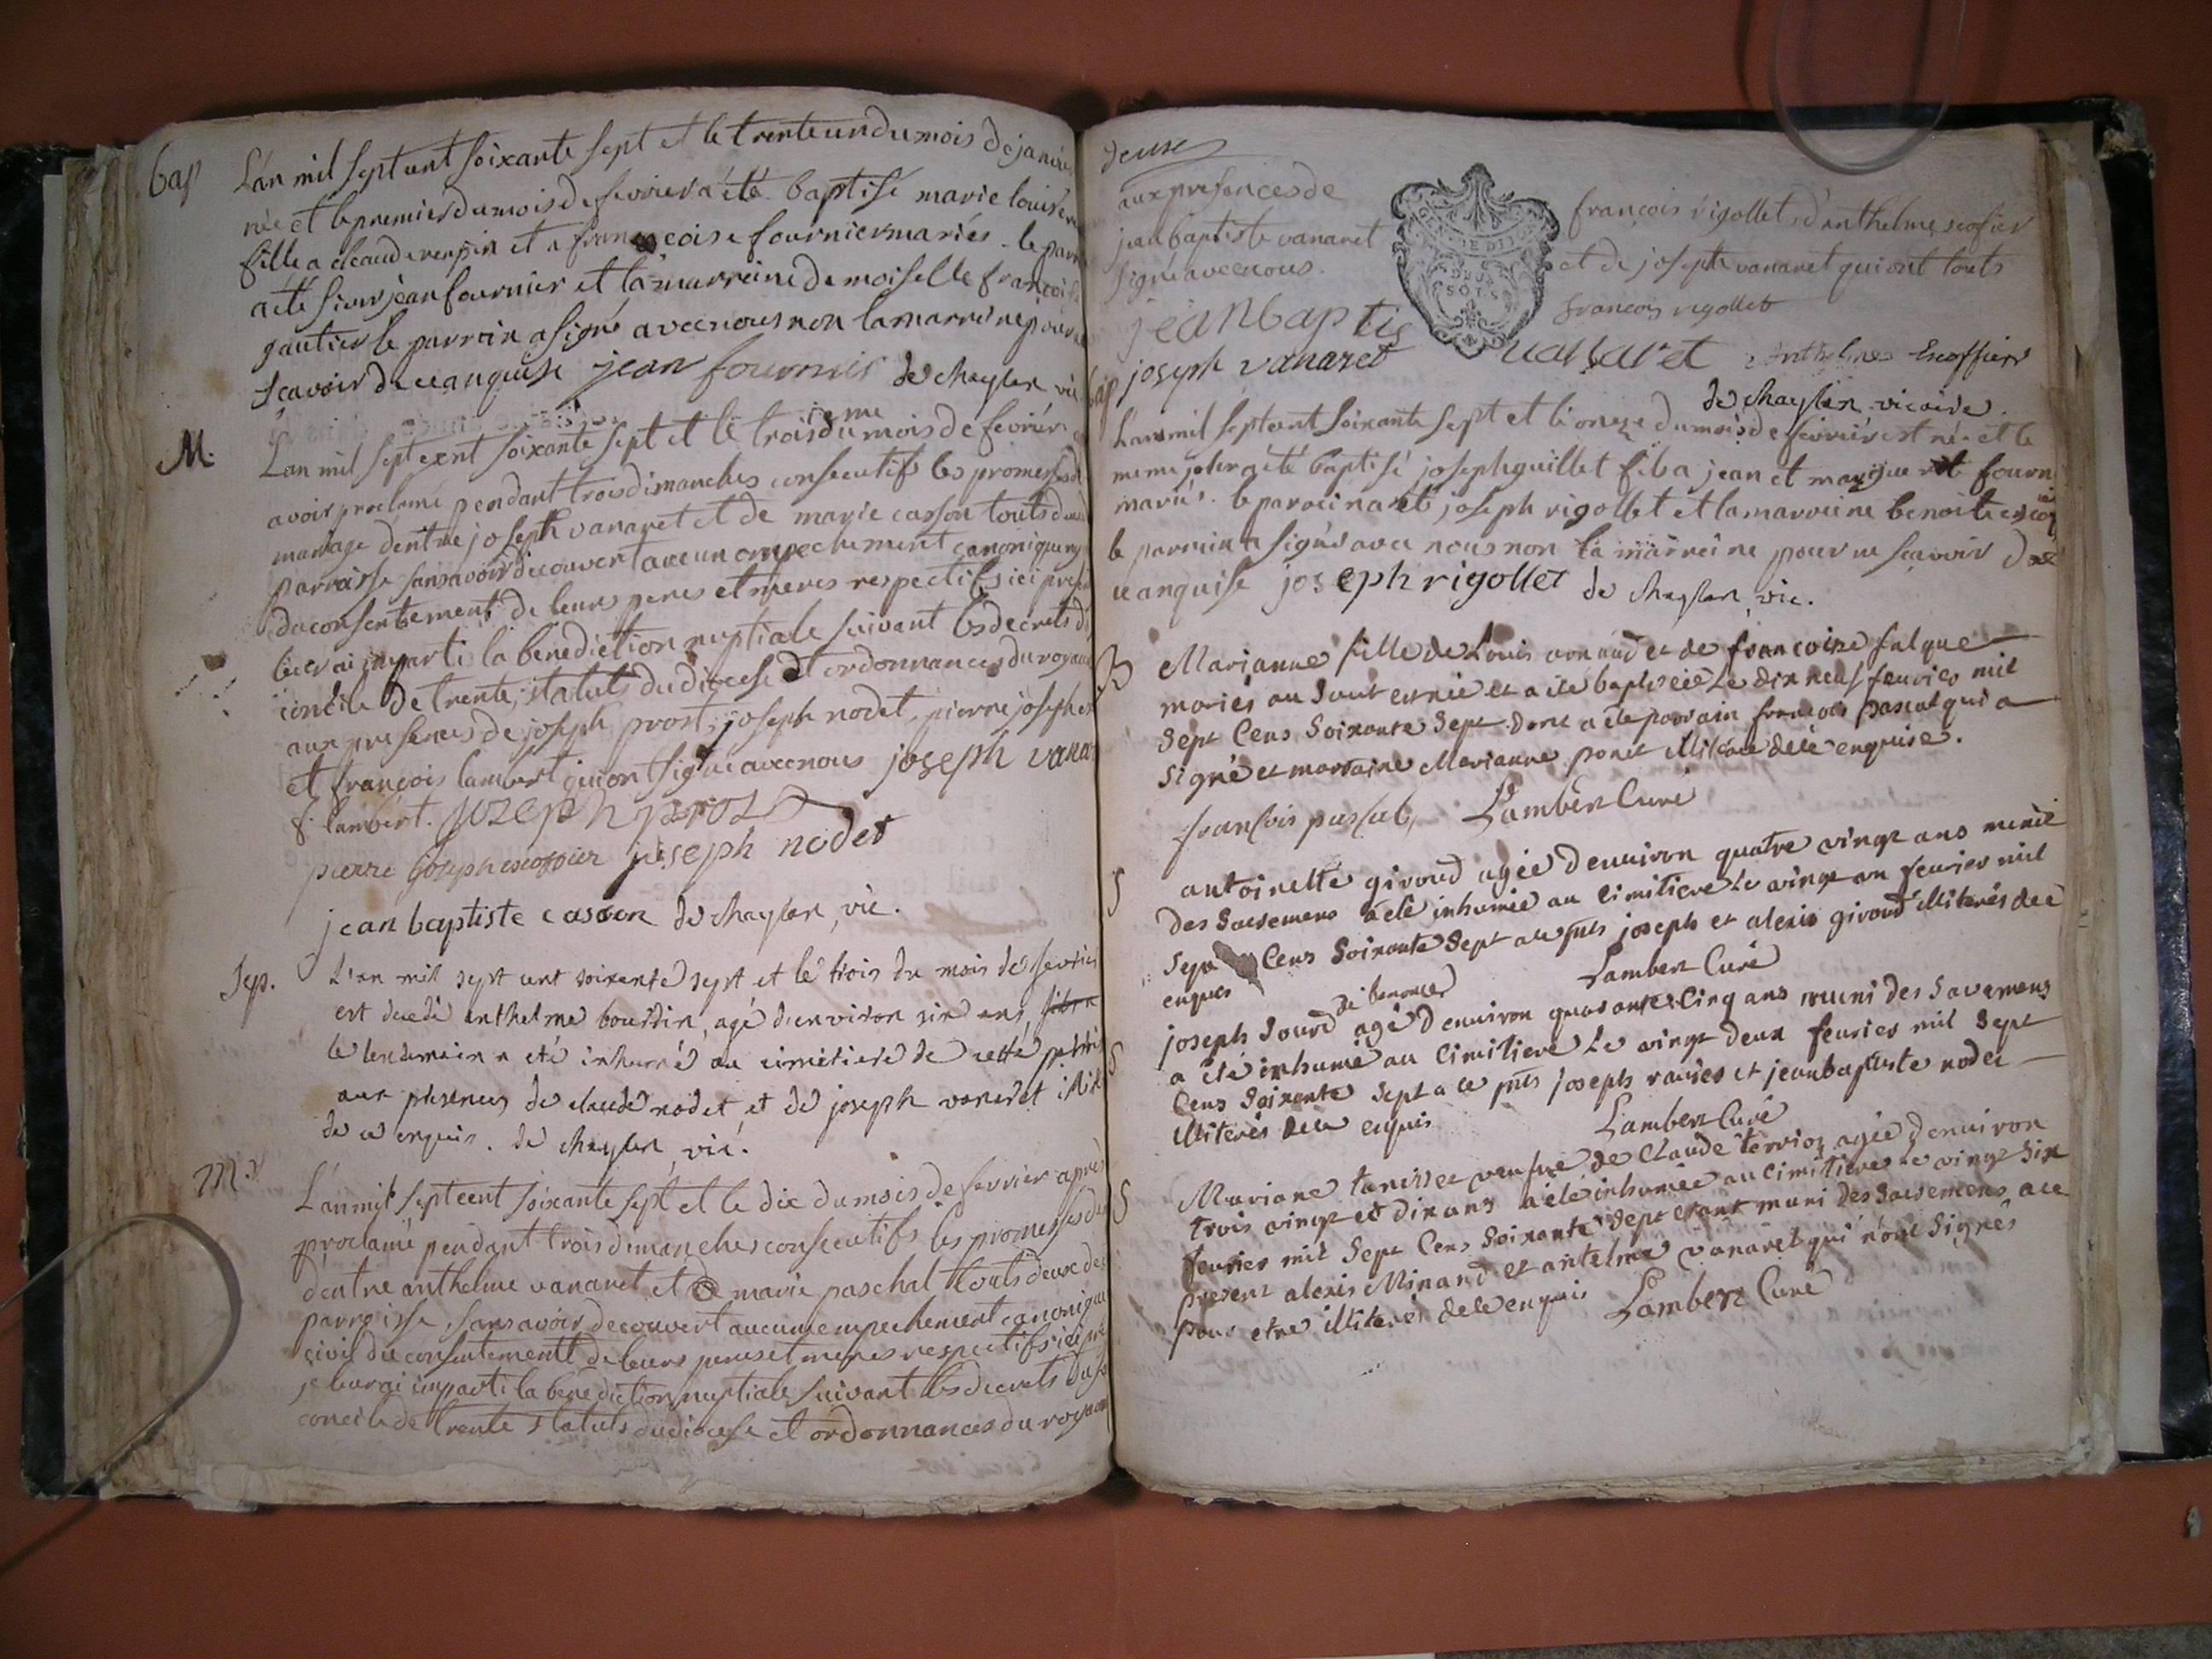 bap
L'án mil sept cent soixante sept et le trente un du mois de janvier
née et le premier du mois de fevrier a été baptisé marie louise
fille a claude et a francoise fournier mariés. le parr
a été sieur jean fournier et la marreine demoiselle françoi
gautier le parrein a signé avec nous non la marreine pour
scavoir de ce anquise jean fournier de chaylan vic
M.
L'an mil sept cent soixante sept et le troisieme du mois de fevrier
avoir proclamé pendant trois dimanches consecutifs les promesses de
mariage d'entre joseph vanaret et de marie casson touts deux
parroisse sans avoir decouvert aucun ompechement canonique ny
du consentement de leurs peres et meres respectifs ici pres
leur ai imparti la benediction nuptiale suivant les decrets du
concile de trente, statuts du diocese et ordonnances du royau
aux presences de joseph prost, joseph nodet, pierre joseph es
et françois lambert qui ont signé avec nous joseph vana
f. lambert. jozeph prost
pierre joseph escoffier joseph nodet
jean baptiste casson de chaylan, vic.
Sep.
L'an mil sept cent soixante sept et le trois du mois de fevrier
est decedé anthelme bourdin, agé d'environ six ans,
le lendemain a eté inhumé au cimetiere de cette
aux presences de claude nodet, et de joseph vanaret illit
de ce enquis. de chaylan, vic.
M.
L'an mil sept cent soixante sept et le dix du mois de fevrier apres
proclamé pendant trois dimanches consecutifs les promesses de
d'entre anthelme vanaret et de marie paschal touts deux de
parroisse, sans avoir decouvert aucun empechement canonique
civil du consentement de leurs peres et meres respectifs ici pre
je leur ai imparti la benediction nuptiale suivant les decrets du s
concile de trente statuts du diocese et ordonnances du royaum
deux
aux presences de françois rigollet d'anthelme scofier
jean baptiste vanaret et de joseph vanaret qui ont touts
signé avec nous. francois rigollet
jean baptis vanaret anthelme Escoffier
joseph vanaret
DEUX
SOLS
de chaylan vicaire.
bap
L'an mil sept cent soixante sept et le onze du mois de fevrier est né et le
meme jour a été baptisé joseph guillet fils a jean et marguerite fourni
mariés. le parrein a été joseph rigollet et la marreine benoite
le parrein a signé avec nous non la marreine pour ne scavoir de
ce anquise joseph rigollet de chaylan, vic.
B
Marianne fille de Louis arnaud et de francoise falque
mariés au Saut est née et a été baptisée Le dix neuf feurier mil
Sept Cens Soixante Sept. Dont a été parrain francois pascal qui a
Signé et marraine Marianne ponet illiterée de ce enquise.
franSois pascal, Lambert Curé
S
antoinette giroud agée d'enuiron quatre vingt ans munie
des Sacremens a été inhumée au Cimitiere Le vingt un feurier mil
Sept Cens Soixante Sept a ce pnts joseph et alexis giroud illiterés de ce
enquis Lambert Curé
S
joseph Sourd agé d'enuiron quarante Cinq ans muni des Sacremens
a été inhumé au Cimitiere Le vingt deux feurier mil Sept
Cens Soixante Sept a ce pnts joseph ravier et jean baptiste nodet
illiterés de ce enquis Lambert Curé
S
Mariane veufue de Claude agée d'enuiron
trois vingt et dix ans a été inhumée au Cimitiere Le vingt Six
feurier mil Sept Cens Soixante Sept etant muni des Sacremens, a ce
present alexis Minand et antelme vanaret qui n'ont Signés
pour etre illiterés de ce enquis Lambert Curé